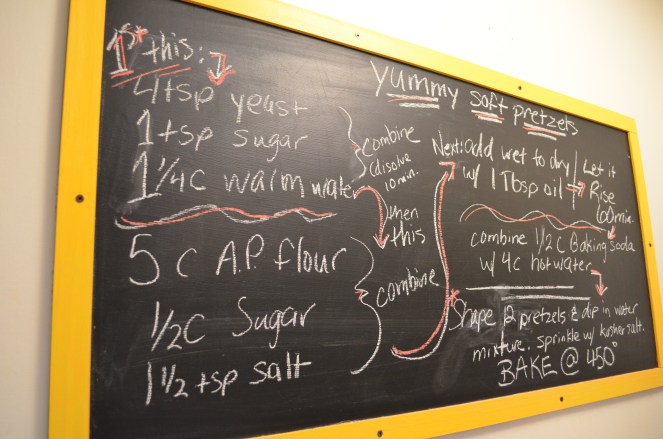 1st this:
4 tsp yeast
1 tsp sugar
1 1/4 C warm water
combine
(disolve
10 min.
then
this
5 C A.P. flour
1/2 C Sugar
1 1/2 tsp salt
combine
yummy soft pretzels
Next: add wet to dry
w/ 1 Tbsp oil
Let it
Rise
60 min.
combine 1/2 C Baking soda
w/ 4c hot water
* Shape 12 pretzels & dip in water
mixture. sprinkle w/ kosher salt.
BAKE @ 450°